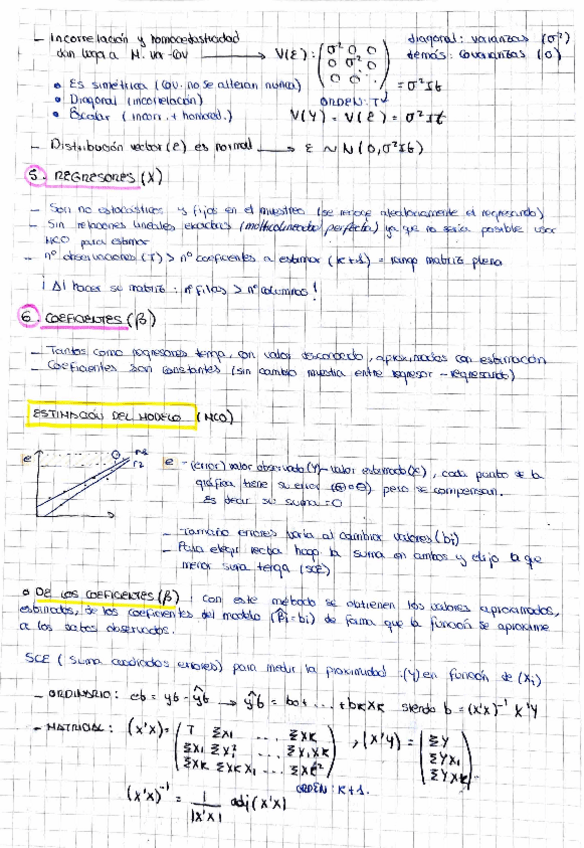 - Incorrelación y homocedasticidad
dan lugar a M. var-cov → V(ε): (σ² 0 0
0 σ² 0
0 0 ⋱) = σ²It
diagonal: varianzas (σ²)
demás: covarianzas (0)
• Es simétrica (cov. no se alteran nunca)
• Diagonal (incorrelación)
• Escalar (incorr. + homoced.)
ORDEN: T
V(Y) = V(ε) = σ²It
- Distribución vector (ε) es normal → ε ~ N(0, σ²It)
5. REGRESORES (X)
- Son no estocásticos y fijos en el muestreo (se recoge aleatoriamente el regresando)
- Sin relaciones lineales exactas (multicolinealidad perfecta) ya que no sería posible usar
MCO para estimar
- nº observaciones (T) > nº coeficientes a estimar (k+1) = rango matriz pleno
¡Al hacer su matriz: nº filas > nº columnas!
6. COEFICIENTES (β)
- Tantos como regresores tenga, con valor desconocido, aproximados con estimación
- Coeficientes son constantes (sin cambio muestra entre regresor - regresando)
ESTIMACIÓN DEL MODELO (MCO)
e
r1
r2
e - (error) valor observado (Y) - valor estimado (x), cada punto de la
gráfica tiene su error (⊕ o ⊖) pero se compensan.
Es decir su suma = 0
- Tamaño errores varía al cambiar valores (bi)
- Para elegir recta hago la suma en ambos y elijo la que
menor suma tenga (SCE)
• DE LOS COEFICIENTES (β): con este método se obtienen los valores aproximados,
estimados, de los coeficientes del modelo (β̂i = bi) de forma que la función se aproxime
a los datos observados.
SCE (suma cuadrados errores) para medir la proximidad (Y) en función de (Xi)
- ORDINARIO: et = yt - ŷt → ŷt = b0 + ... + bkXk siendo b = (X'X)⁻¹ X'Y
- MATRICIAL: (X'X) = (T ΣX1 ... ΣXK
ΣX1 ΣX1² ... ΣX1XK
ΣXK ΣXKX1 ... ΣXK²), (X'Y) = (ΣY
ΣYX1
ΣYXK)
ORDEN: K+1.
(X'X)⁻¹ = 1/|X'X| adj(X'X)